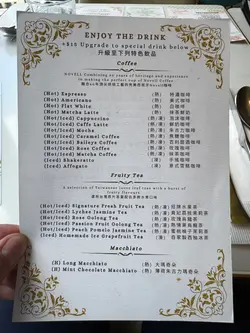 ENJOY THE DRINK
+$18 Upgrade to special drink below
升級至下列特色飲品
Coffee
NOVELL Combining 50 years of beverage and experience
in making the perfect cup of Novell Coffee
(Hot) Espresso (熱) 特濃咖啡
(Hot) Americano (熱) 美式咖啡
(Hot) Flat White (熱)
(Hot) Matcha Latte (熱) 抹茶咖啡
(Hot/Iced) Cappuccino (熱/凍) 泡沫咖啡
(Hot/Iced) Caffe Latte (熱/凍) 鮮奶咖啡
(Hot/Iced) Mocha (熱/凍) 朱古力咖啡
(Hot/Iced) Caramel Coffee (熱/凍) 焦糖咖啡
(Hot/Iced) Baileys Coffee (熱/凍) 咖啡
(Hot/Iced) Rose Coffee (熱/凍) 玫瑰咖啡
(Hot/Iced) Matcha Coffee (熱/凍) 抹茶咖啡
(Iced) Shakeratto (凍) 手搖咖啡
(Iced) Affogato (凍) 意式雪糕咖啡
Fruity Tea
A selection of Taiwanese loose leaf teas with a burst of
fruity flavours
(Hot/Iced) Signature Fresh Fruit Tea (熱/凍) 招牌水果茶
(Hot/Iced) Lychee Jasmine Tea (熱/凍) 荔枝茉莉花茶
(Hot/Iced) Rose Oolong Tea (熱/凍) 玫瑰烏龍茶
(Hot/Iced) Passion Fruit Oolong Tea (熱/凍) 熱情果烏龍茶
(Hot/Iced) Peach Pomelo Jasmine Tea (熱/凍)
(Iced) Homemade Ice Grapefruit Tea (凍) 自家製西柚冰茶
Macchiato
(H) Long Macchiato (熱) 大瑪奇朵
(H) Mint Chocolate Macchiato (熱) 薄荷朱古力瑪奇朵